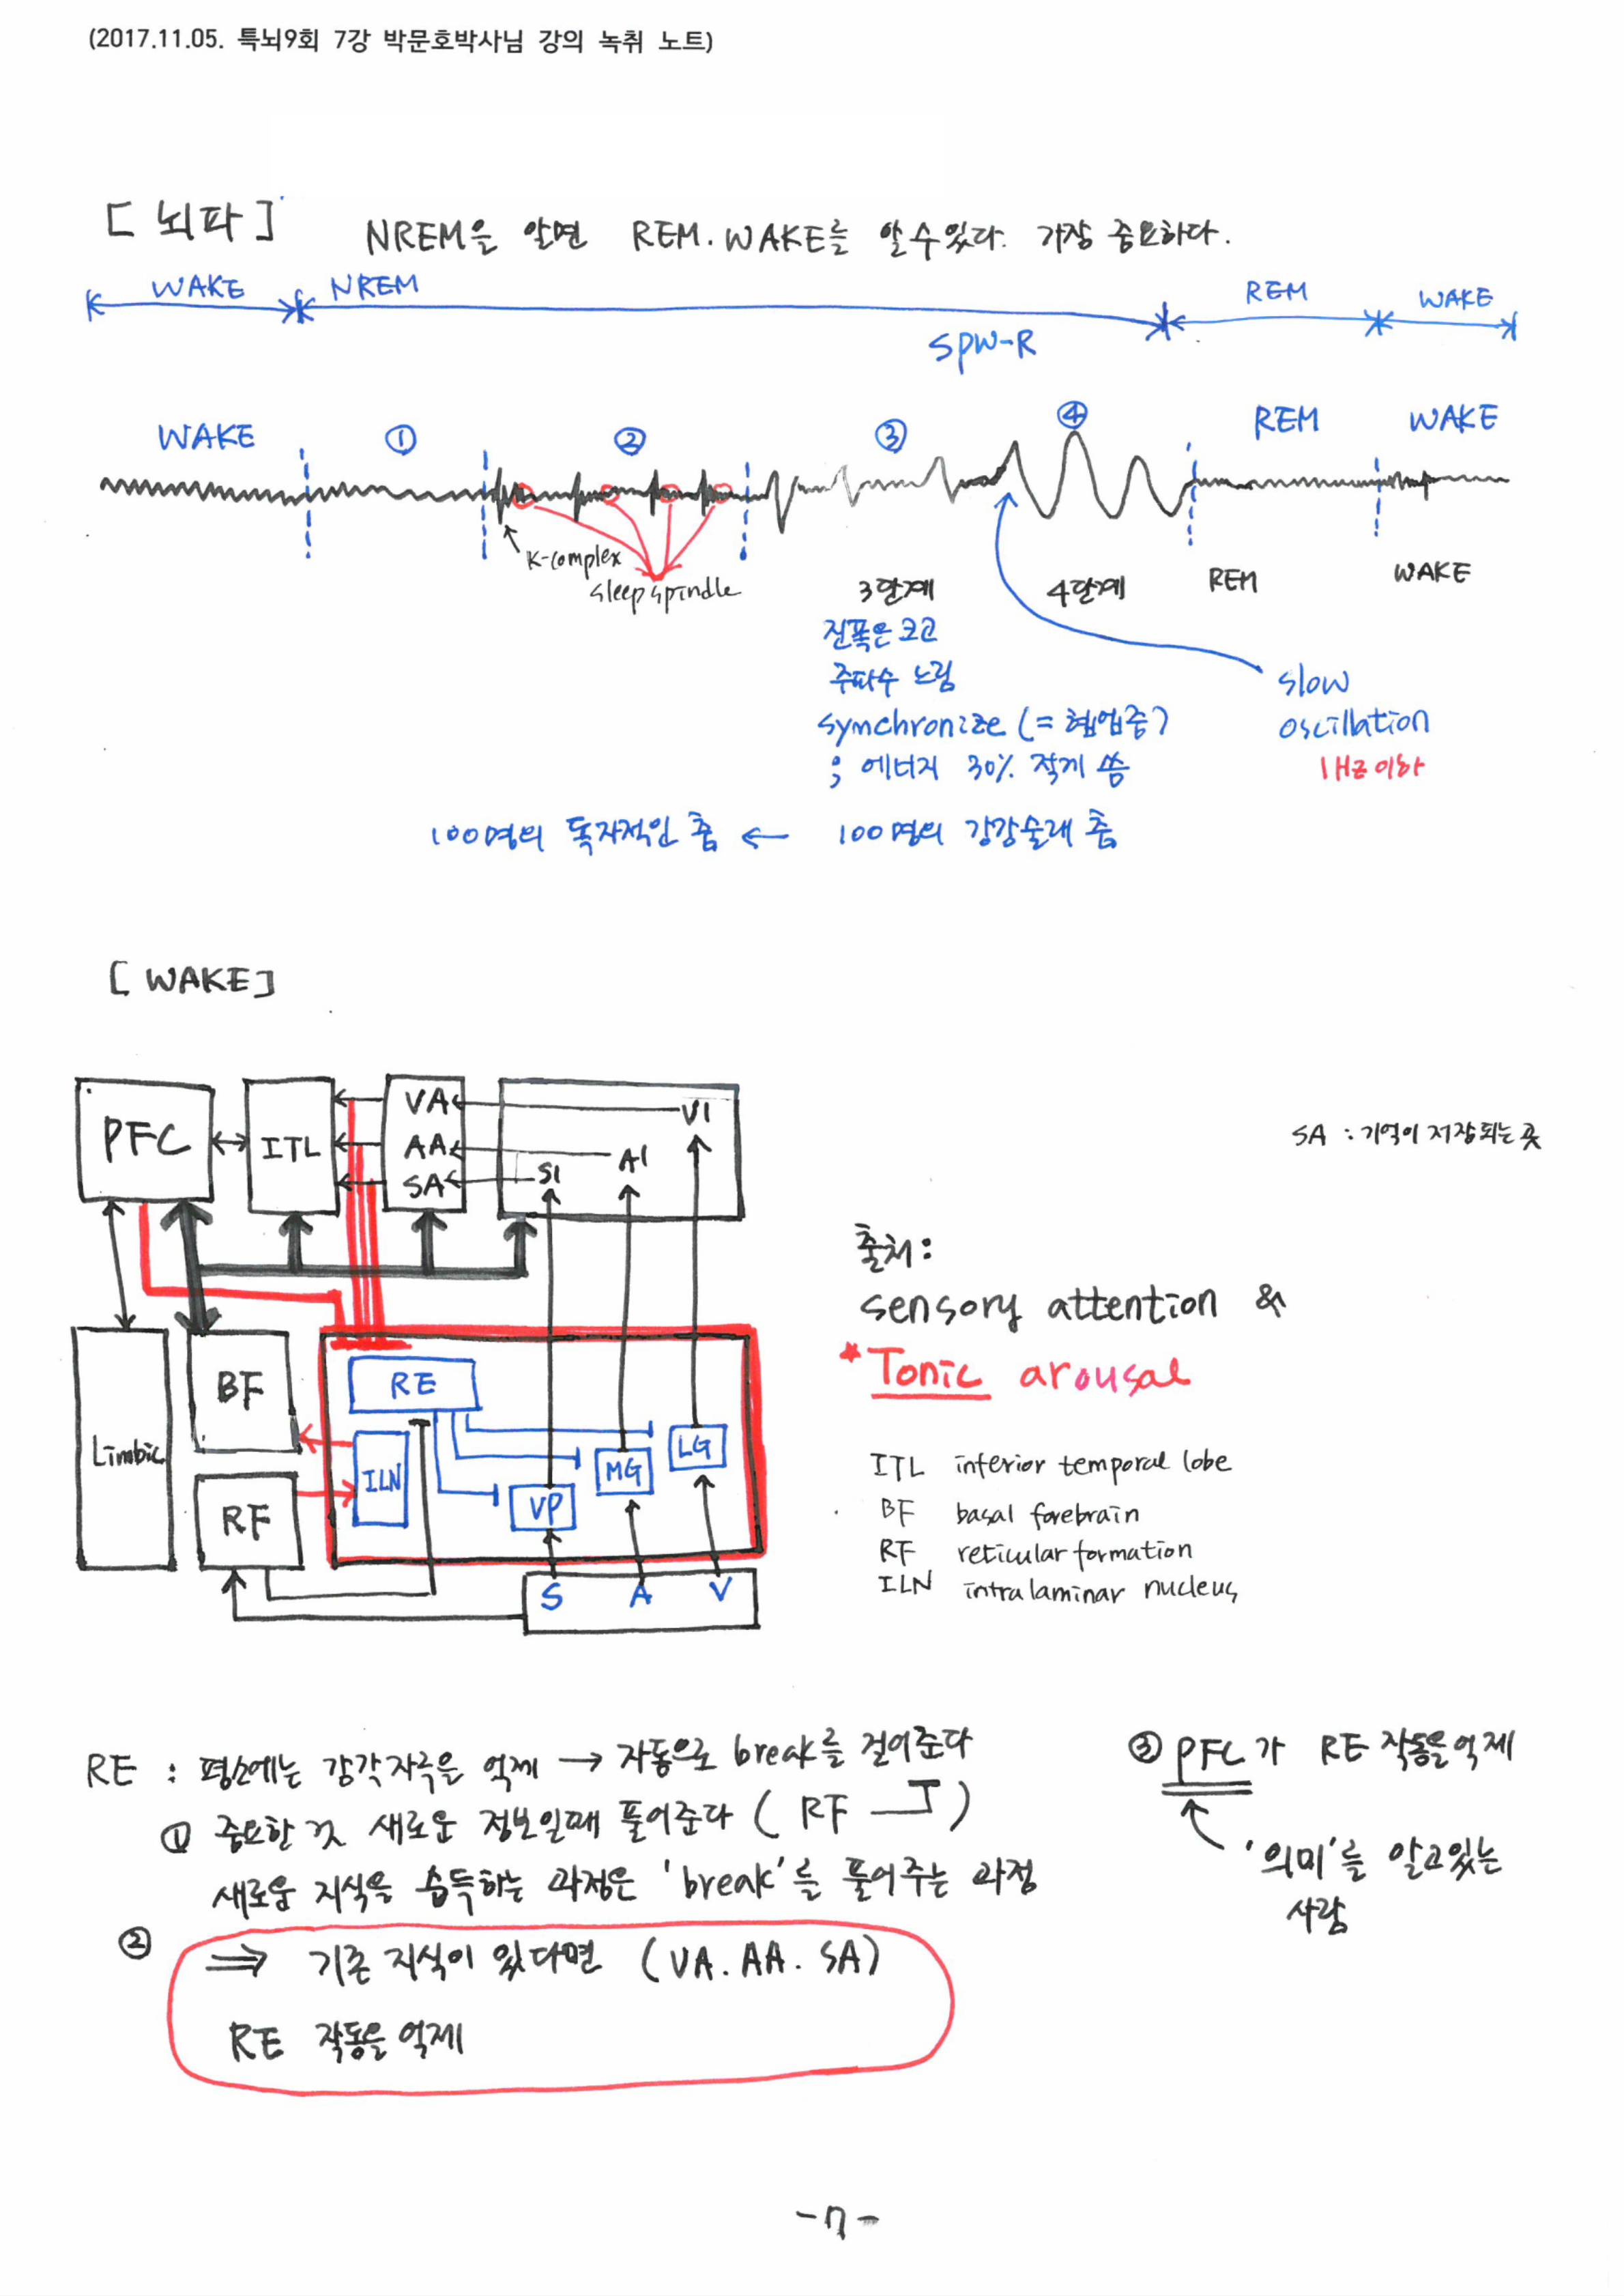 (2017.11.05. 특뇌9회 7강 박문호박사님 강의 녹취 노트)
[뇌파]
NREM을 알면 REM. WAKE를 알수있다. 가장 중요하다.
WAKE NREM REM WAKE
SPW-R
WAKE ① ② ③ ④ REM WAKE
K-complex
sleep spindle
3단계 4단계 REM WAKE
진폭은 크고
주파수 느림
synchronize (= 협업중)
; 에너지 30% 적게 씀
slow
oscillation
1Hz 이하
100명의 독자적인 춤 ← 100명의 강강술래 춤
[WAKE]
PFC ITL VA V1
AA A1
SA S1
SA : 기억이 저장되는 곳
출처:
sensory attention &
*Tonic arousal
Limbic BF RE
RF ILN VP MG LG
S A V
ITL inferior temporal lobe
BF basal forebrain
RF reticular formation
ILN intralaminar nucleus
RE : 평소에는 감각자극을 억제 → 자동으로 break를 걸어준다
① 중요한 것 새로운 정보일때 풀어준다 ( RF )
새로운 지식을 습득하는 과정은 'break'를 풀어주는 과정
② ⇒ 기존 지식이 있다면 (VA. AA. SA)
RE 작동을 억제
③ PFC가 RE 작동을 억제
'의미'를 알고있는
사람
-7-